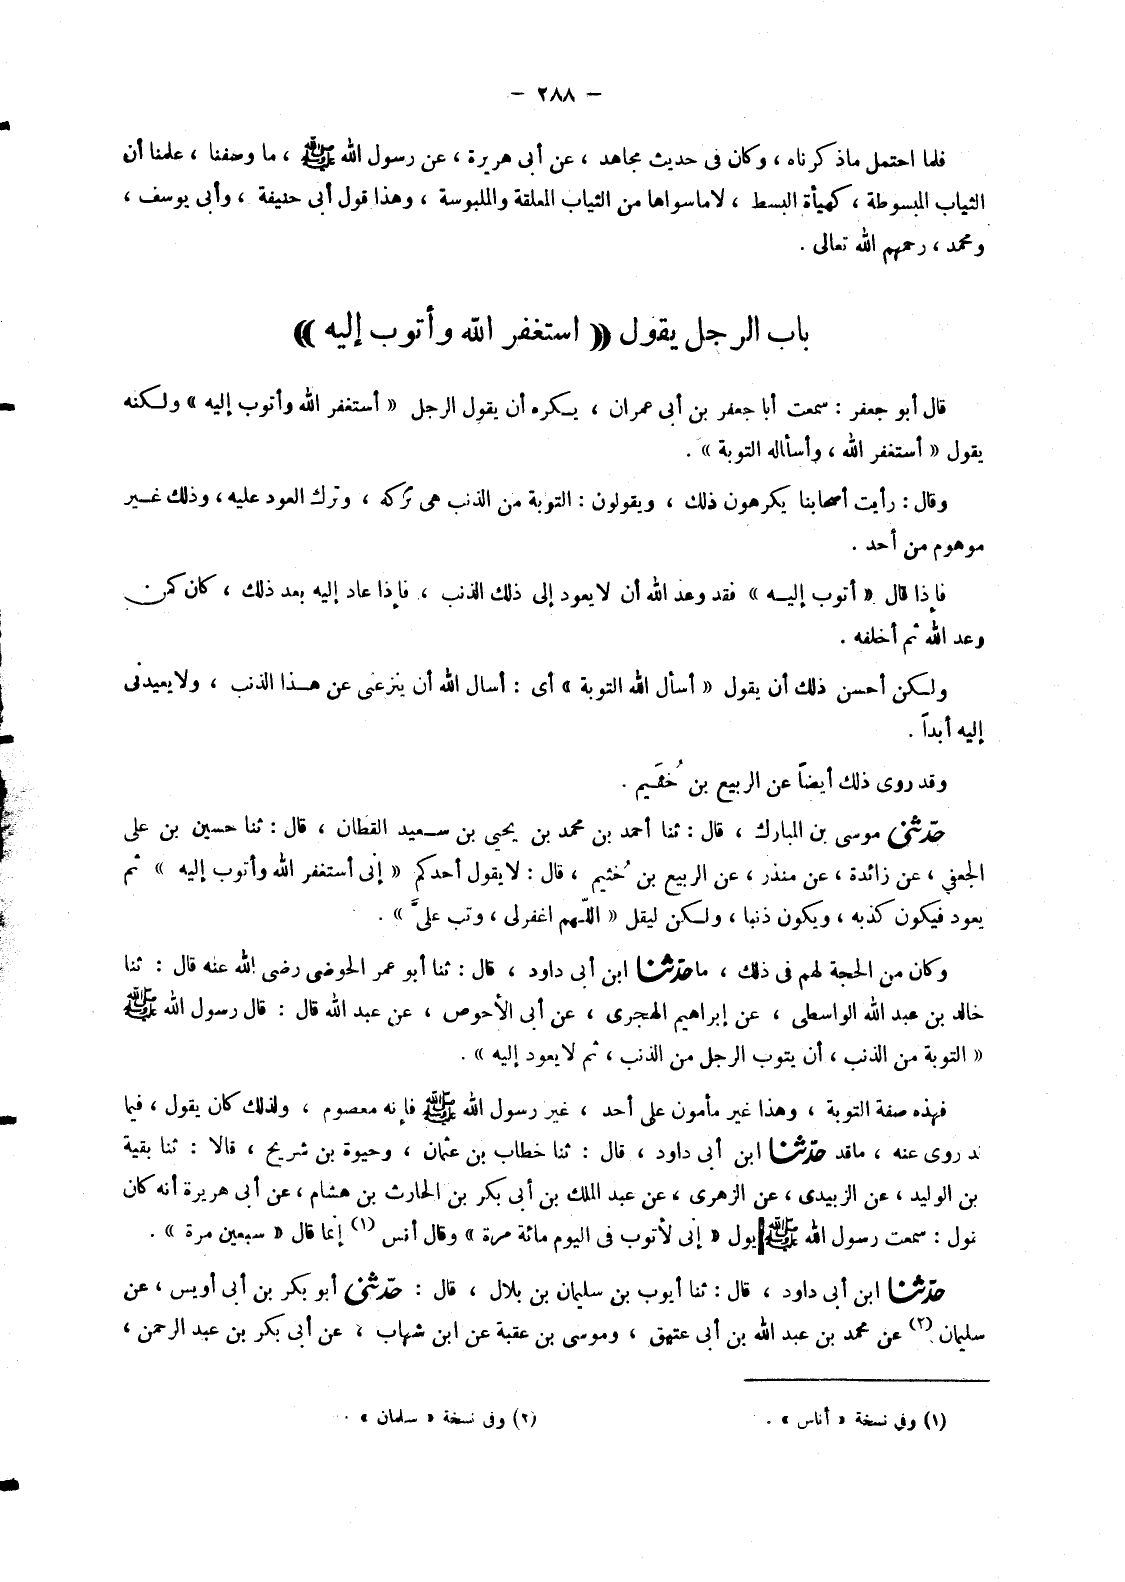 — ٢٨٨ —
فلما احتمل ماذكرناه ، وكان فى حديث مجاهد ، عن أبى هريرة ، عن رسول الله ﷺ ، ما وصفنا ، علمنا أن
الثياب المبسوطة ، كهيأة البسط ، لاماسواها من الثياب المعلقة والملبوسة ، وهذا قول أبى حنيفة ، وأبى يوسف ،
ومحمد ، رحمهم الله تعالى .
باب الرجل يقول (( استغفر الله وأتوب إليه ))
قال أبو جعفر : سمعت أبا جعفر بن أبى عمران ، يكره أن يقول الرجل « أستغفر الله وأتوب إليه » ولكنه
يقول « أستغفر الله ، وأسأله التوبة » .
وقال : رأيت أصحابنا يكرهون ذلك ، ويقولون : التوبة من الذنب هى تركه ، وترك العود عليه ، وذلك غير
موهوم من أحد .
فإذا قال « أتوب إليه » فقد وعد الله أن لايعود إلى ذلك الذنب ، فإذا عاد إليه بعد ذلك ، كان كمن
وعد الله ثم أخلفه .
ولكن أحسن ذلك أن يقول « أسأل الله التوبة » أى : أسال الله أن ينزعنى عن هذا الذنب ، ولايعيدنى
إليه أبداً .
وقد روى ذلك أيضاً عن الربيع بن خُثَيم .
حدّثنى موسى بن المبارك ، قال : ثنا أحمد بن محمد بن يحيى بن سعيد القطان ، قال : ثنا حسين بن على
الجعفي ، عن زائدة ، عن منذر ، عن الربيع بن خُثيم ، قال : لايقول أحدكم « إنى أستغفر الله وأتوب إليه » ثم
يعود فيكون كذبه ، ويكون ذنبا ، ولكن ليقل « اللّهم اغفرلى ، وتب علىَّ » .
وكان من الحجة لهم فى ذلك ، ماحدّثنا ابن أبى داود ، قال : ثنا أبو عمر الحوضى رضى الله عنه قال : ثنا
خالد بن عبد الله الواسطى ، عن إبراهيم الهجرى ، عن أبى الأحوص ، عن عبد الله قال : قال رسول الله ﷺ
« التوبة من الذنب ، أن يتوب الرجل من الذنب ، ثم لايعود إليه » .
فهذه صفة التوبة ، وهذا غير مأمون على أحد ، غير رسول الله ﷺ فإنه معصوم ، ولذلك كان يقول ، فيما
روى عنه ، ماقد حدّثنا ابن أبى داود ، قال : ثنا خطاب بن عثمان ، وحيوة بن شريح ، قالا : ثنا بقية
بن الوليد ، عن الزبيدى ، عن الزهرى ، عن عبد الملك بن أبى بكر بن الحارث بن هشام ، عن أبى هريرة أنه كان
: سمعت رسول الله ﷺ « إنى لأتوب فى اليوم مائة مرة » وقال أنس (١) إنما قال « سبعين مرة » .
حدّثنا ابن أبى داود ، قال : ثنا أيوب بن سليمان بن بلال ، قال : حدّثنى أبو بكر بن أبى أويس ، عن
سليمان (٢) عن محمد بن عبد الله بن أبى عتيق ، وموسى بن عقبة عن ابن شهاب ، عن أبى بكر بن عبد الرحمن ،
(١) وفي نسخة « أناس » . (٢) وفى نسخة « سلمان » .